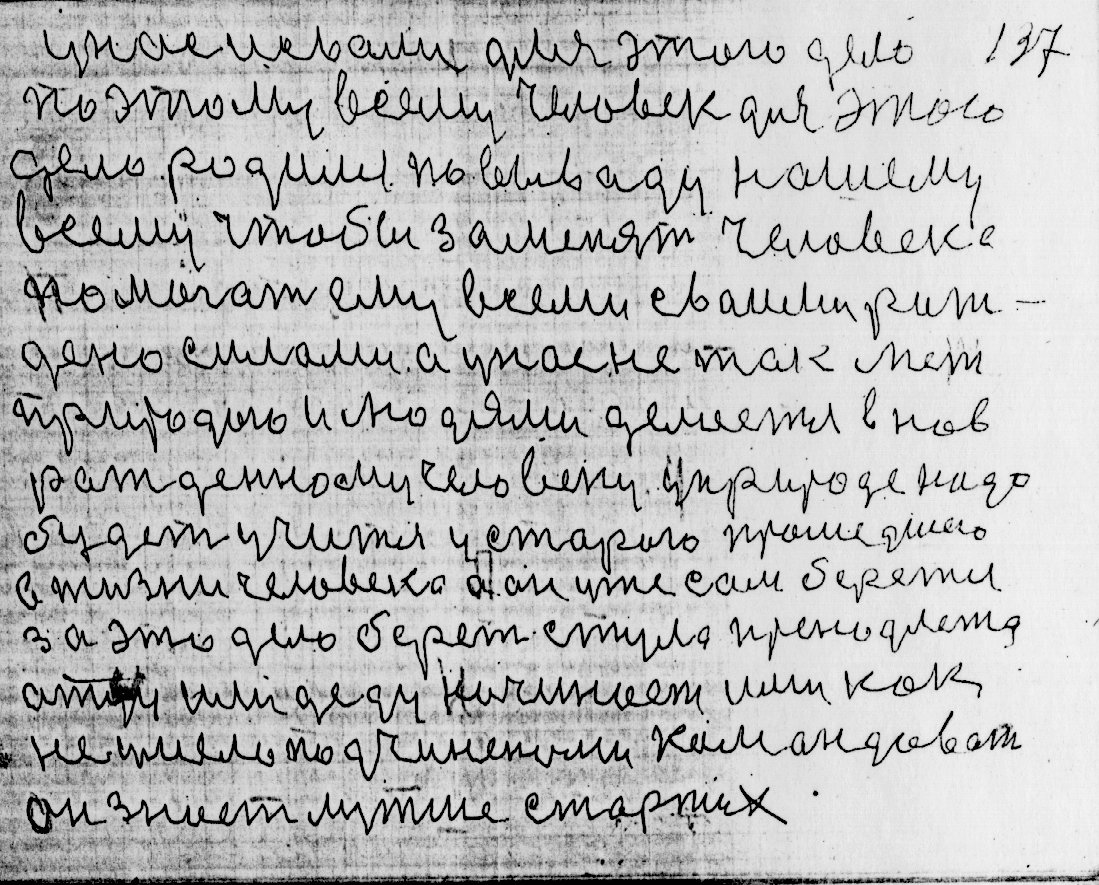 унас исвами для этого дело 137
поэтому всему человек для этого
дело родилсл по нашему
всему чтоби заменят человека
помагат ему всеми сваими рит-
дено силами. а унас не так меж
природою и людями делеетсл внов
ратденному человеку. уприроде надо
будет учитсл у старого прошедшего
в тизни человека. а он уже сам беретсл
за это дело берет стула пренодлета
атцу или деду начинает ими как
неумело подчиненоми камандоват
он знает лутше старших